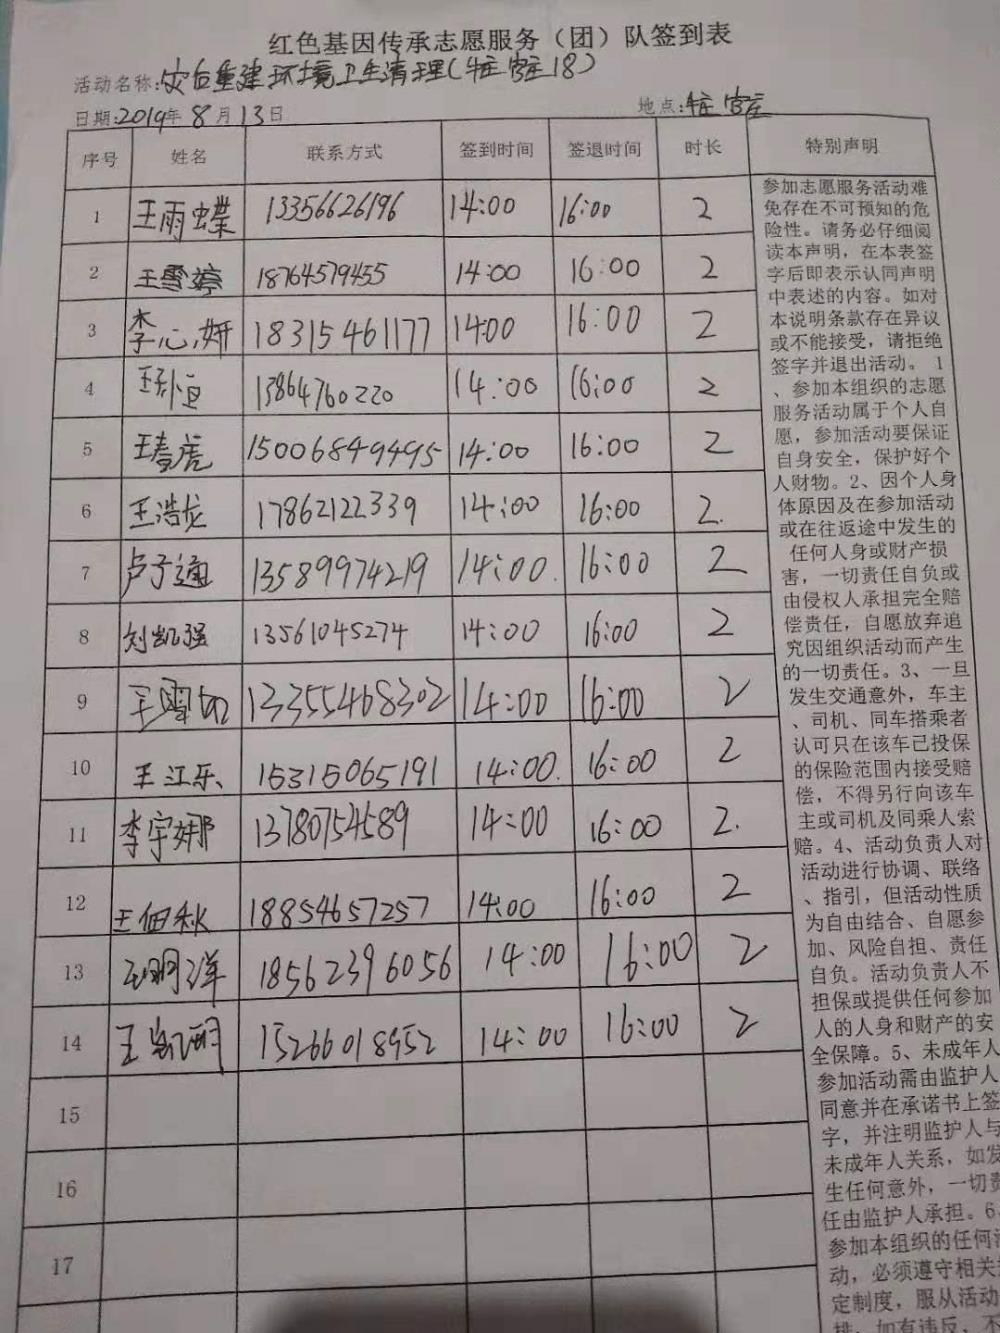 红色基因传承志愿服务（团）队签到表
活动名称:灾后重建环境卫生清理(牛庄官庄18)
日期:2019年8月13日 地点:官庄
序号 姓名 联系方式 签到时间 签退时间 时长 特别声明
1 王雨蝶 13356626196 14:00 16:00 2
2 王雪婷 18764579455 14:00 16:00 2
3 李心妍 18315461177 14:00 16:00 2
4 王孙恒 13864760220 14:00 16:00 2
5 王春虎 15006849495 14:00 16:00 2
6 王浩龙 17862122339 14:00 16:00 2.
7 卢子通 13589974219 14:00. 16:00 2
8 刘凯强 13561045274 14:00 16:00 2
9 王雪如 13355468302 14:00 16:00 2
10 王江乐 15315065191 14:00. 16:00 2
11 李宇娜 13780754589 14:00 16:00 2.
12 王佃秋 18854657257 14:00 16:00 2
13 王明洋 18562396056 14:00 16:00 2
14 王凯明 15266018952 14:00 16:00 2
15
16
17
参加志愿服务活动难
免存在不可预知的危
险性。请务必仔细阅
读本声明，在本表签
字后即表示认同声明
中表述的内容。如对
本说明条款存在异议
或不能接受，请拒绝
签字并退出活动。 1
、参加本组织的志愿
服务活动属于个人自
愿，参加活动要保证
自身安全，保护好个
人财物。2、因个人身
体原因及在参加活动
或在往返途中发生的
任何人身或财产损
害，一切责任自负或
由侵权人承担完全赔
偿责任，自愿放弃追
究因组织活动而产生
的一切责任。3、一旦
发生交通意外，车主
、司机、同车搭乘者
认可只在该车已投保
的保险范围内接受赔
偿，不得另行向该车
主或司机及同乘人索
赔。4、活动负责人对
活动进行协调、联络
、指引，但活动性质
为自由结合、自愿参
加、风险自担、责任
自负。活动负责人不
担保或提供任何参加
人的人身和财产的安
全保障。5、未成年人
参加活动需由监护人
同意并在承诺书上签
字，并注明监护人与
未成年人关系，如发
生任何意外，一切责
任由监护人承担。6、
参加本组织的任何活
动，必须遵守相关
定制度，服从活动
排，如有违反，不